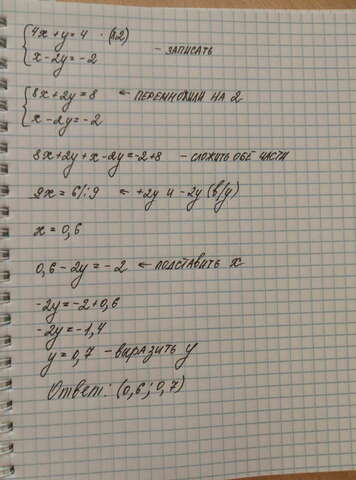 4x+y=4 ·(2)
x-2y=-2 - ЗАПИСАТЬ
8x+2y=8 ← ПЕРЕМНОЖИЛИ НА 2
x-2y=-2
8x+2y+x-2y=-2+8 - СЛОЖИТЬ ОБЕ ЧАСТИ
9x=6/:9 ← +2y и -2y (в/у)
x=0,6
0,6-2y=-2 ← ПОДСТАВИТЬ x
-2y=-2+0,6
-2y=-1,4
y=0,7 - выразить y
Ответ: (0,6;0,7)